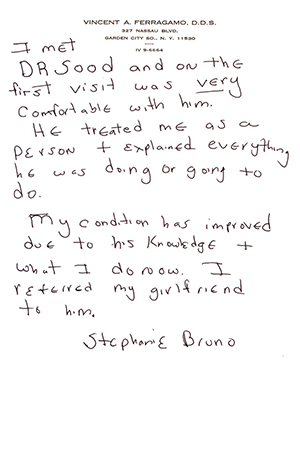 VINCENT A. FERRAGAMO, D.D.S.
327 NASSAU BLVD.
GARDEN CITY SO., N. Y. 11530
IV 9-6664
I met
DR Sood and on the
first visit was very
comfortable with him.
He treated me as a
person + explained everything
he was doing or going to
do.
My condition has improved
due to his knowledge +
what I do now. I
referred my girlfriend
to him.
Stephanie Bruno